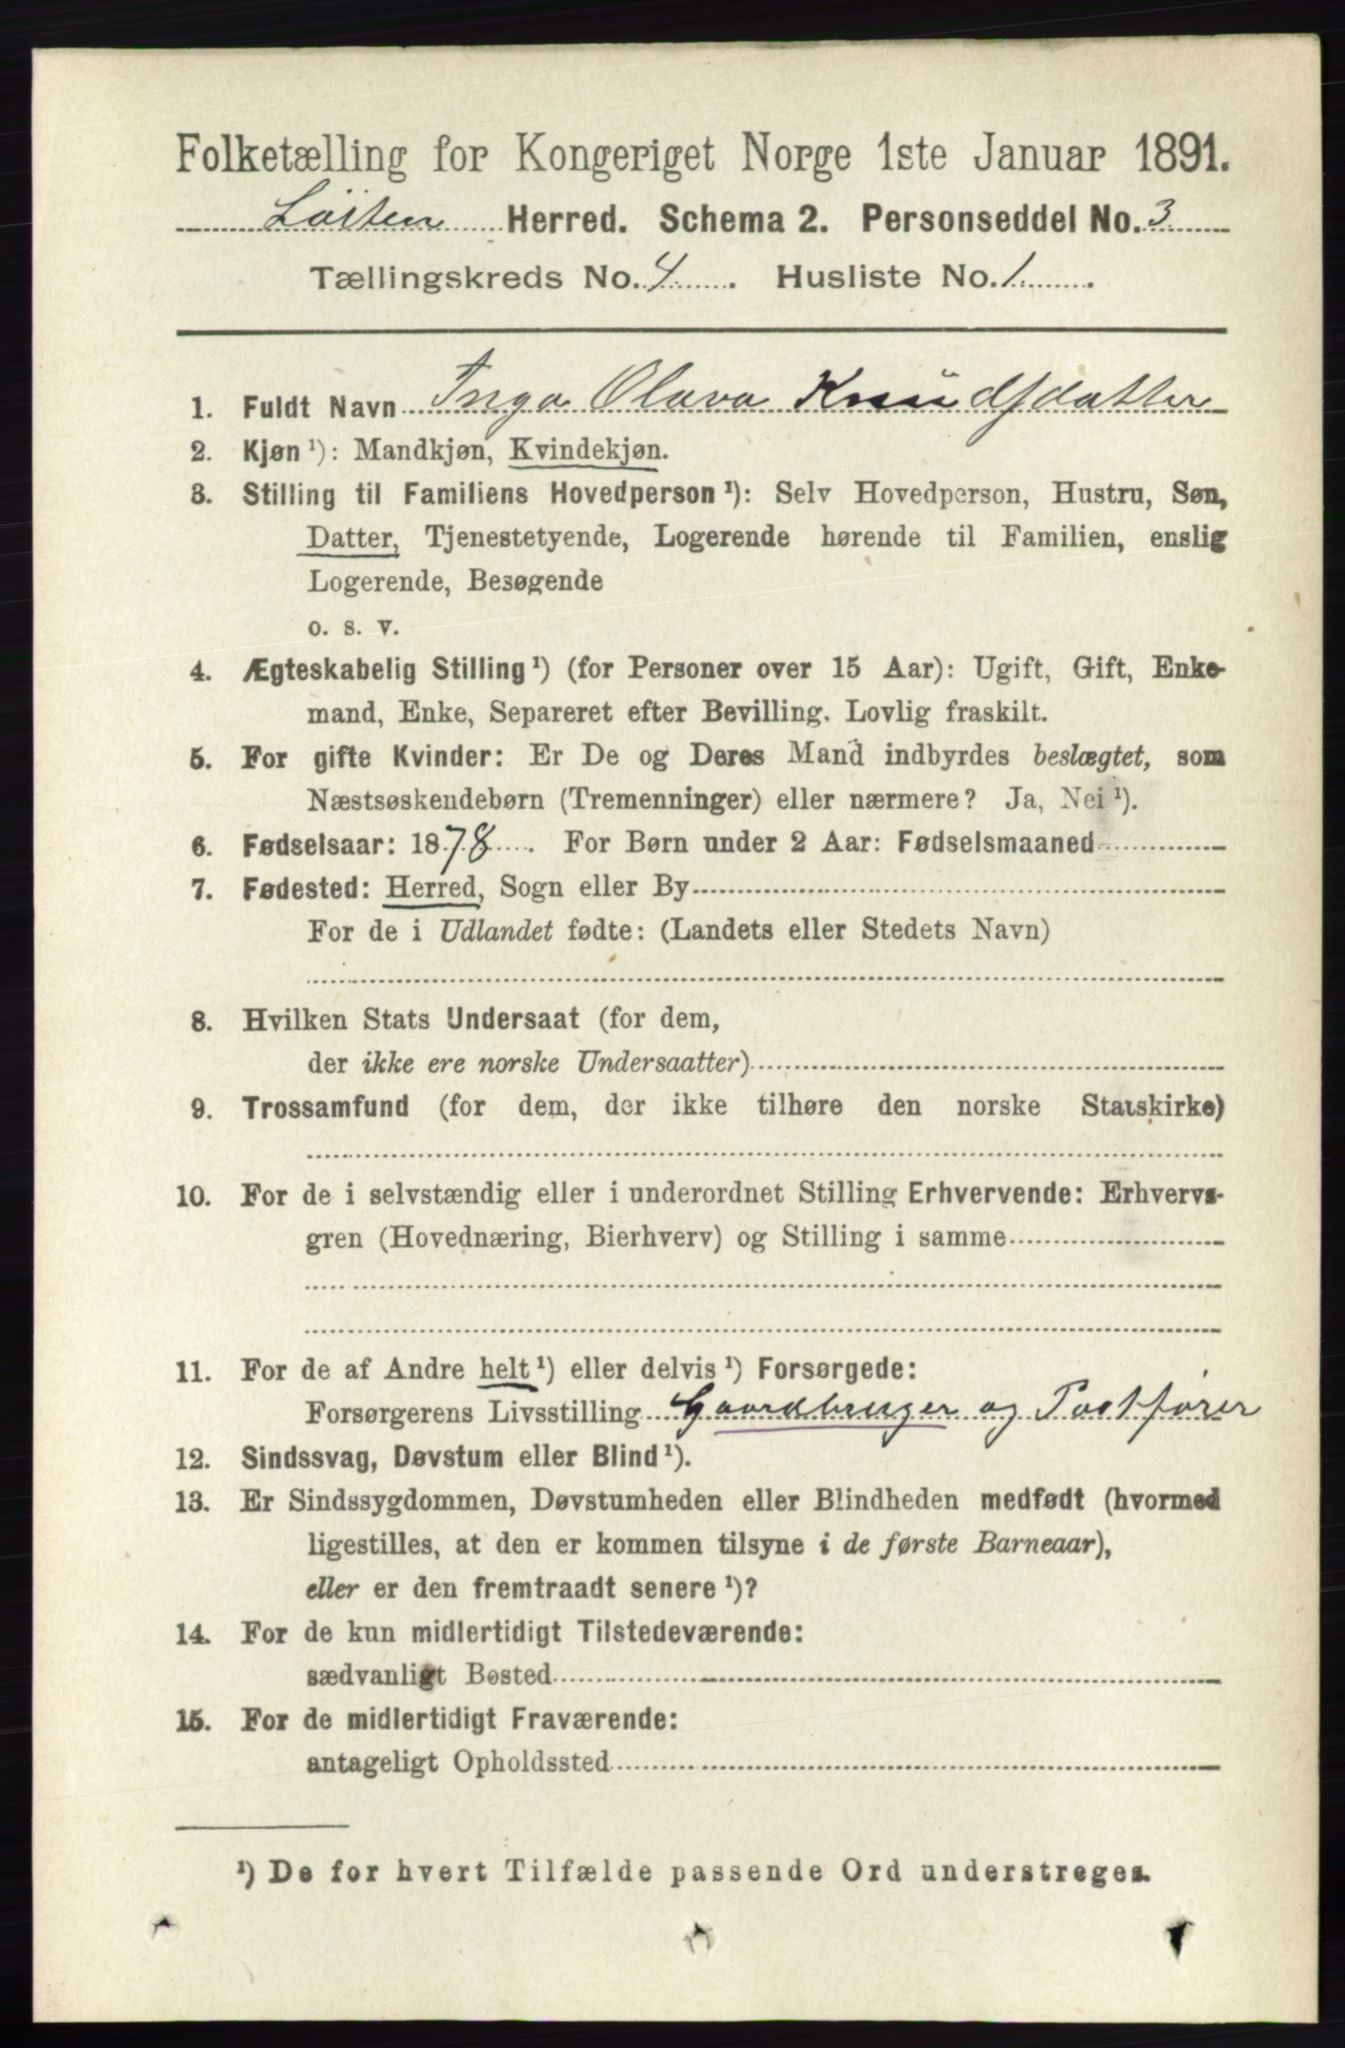 Folketælling for Kongeriget Norge 1ste Januar 1891.
Löiten Herred. Schema 2. Personseddel No. 3
Tællingskreds No. 4. Husliste No. 1.
1. Fuldt Navn Inga Olava Knudsdatter
2. Kjøn ¹): Mandkjøn, Kvindekjøn.
3. Stilling til Familiens Hovedperson ¹): Selv Hovedperson, Hustru, Søn,
Datter, Tjenestetyende, Logerende hørende til Familien, enslig
Logerende, Besøgende
o. s. v.
4. Ægteskabelig Stilling ¹) (for Personer over 15 Aar): Ugift, Gift, Enke-
mand, Enke, Separeret efter Bevilling. Lovlig fraskilt.
5. For gifte Kvinder: Er De og Deres Mand indbyrdes beslægtet, som
Næstsøskendebørn (Tremenninger) eller nærmere? Ja, Nei ¹).
6. Fødselsaar: 1878. For Børn under 2 Aar: Fødselsmaaned
7. Fødested: Herred, Sogn eller By
For de i Udlandet fødte: (Landets eller Stedets Navn)
8. Hvilken Stats Undersaat (for dem,
der ikke ere norske Undersaatter)
9. Trossamfund (for dem, der ikke tilhøre den norske Statskirke)
10. For de i selvstændig eller i underordnet Stilling Erhvervende: Erhvervs-
gren (Hovednæring, Bierhverv) og Stilling i samme
11. For de af Andre helt ¹) eller delvis ¹) Forsørgede:
Forsørgerens Livsstilling Gaardbruger og Postfører
12. Sindssvag, Døvstum eller Blind ¹).
13. Er Sindssygdommen, Døvstumheden eller Blindheden medfødt (hvormed
ligestilles, at den er kommen tilsyne i de første Barneaar),
eller er den fremtraadt senere ¹)?
14. For de kun midlertidigt Tilstedeværende:
sædvanligt Bosted
15. For de midlertidigt Fraværende:
antageligt Opholdssted
¹) De for hvert Tilfælde passende Ord understreges.